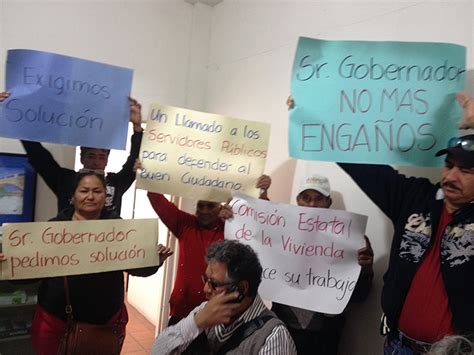 Exigimos
Solución
Un Llamado a los
Servidores Públicos
para defender al
Buen Ciudadano.
Sr. Gobernador
NO MAS
ENGAÑOS
Sr. Gobernador
pedimos solución
Comisión Estatal
de la Vivienda
ce su trabajo